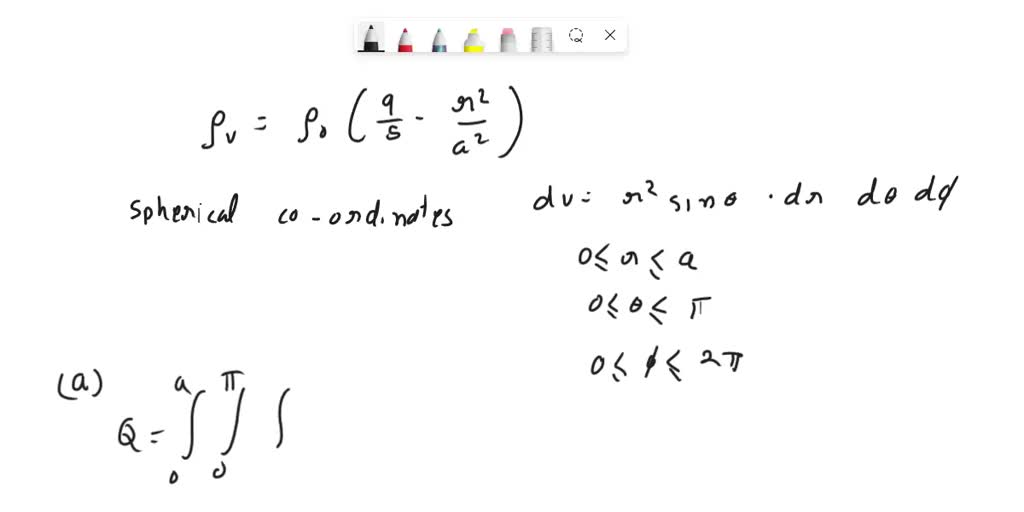 ρv = ρ0 ( 9/5 - r²/a² )
spherical co-ordinates
dv = r² sinθ · dr dθ dϕ
0 ≤ r ≤ a
0 ≤ θ ≤ π
0 ≤ ϕ ≤ 2π
(a)
Q = ∫₀ᵃ ∫₀^π ∫